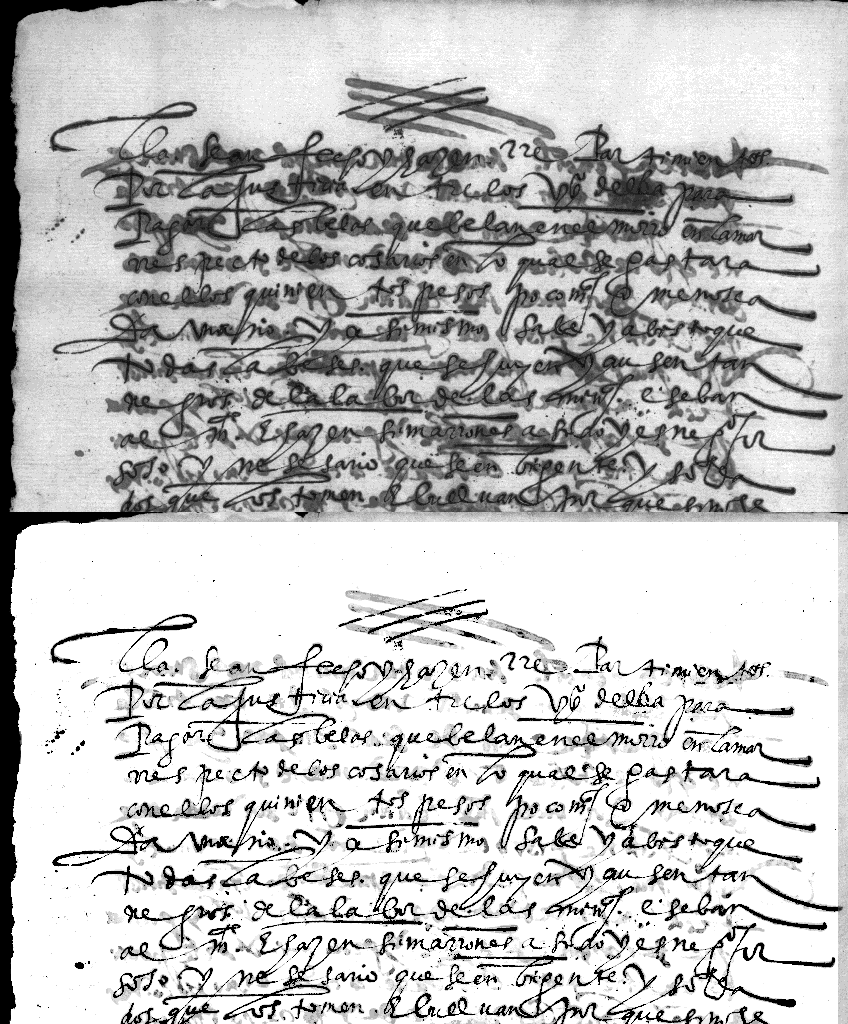 lla. se an fecho y hazen. rre Partimientos
Por la justicia en tre los vos della para
Pagar las belas. que belan en el morro en la mar
rres pecto de los cosarios en lo qual se gastara
con ellos quinien tos pesos poco mas o menos ca
Da un año. y a si mismo sabe y a bisto que
to das la beses. que se huyen y au sen tan
ne gros. de la la bor de las minas. e se ban
al mte. E hazen simarrones a sido y es ne
soso. y ne se sario que se en bie gente. y solda
dos que los tomen. por que si no se
lla. se an fecho y hazen. rre Partimientos
Por la justicia en tre los vos della para
Pagar las belas. que belan en el morro en la mar
rres pecto de los cosarios en lo qual se gastara
con ellos quinien tos pesos poco mas o menos ca
Da un año. y a si mismo sabe y a bisto que
to das la beses. que se huyen y au sen tan
ne gros. de la la bor de las minas. e se ban
al mte. E hazen simarrones a sido y es ne
soso. y ne se sario que se en bie gente. y solda
dos que los tomen. por que si no se